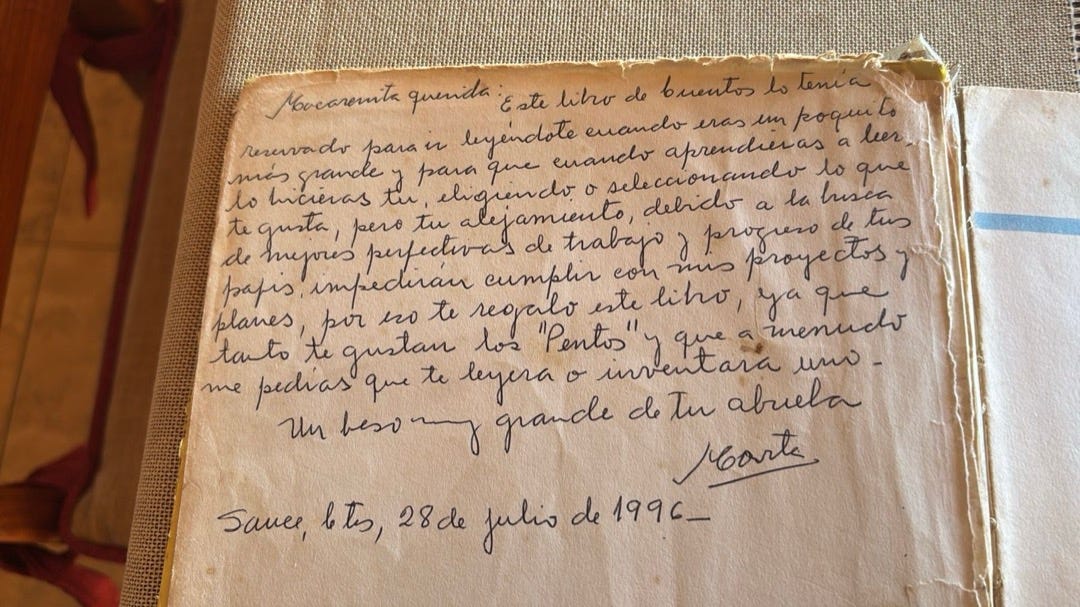 Macarenita querida: Este libro de cuentos lo tenía
reservado para ir leyéndote cuando eras un poquito
más grande y para que cuando aprendieras a leer,
lo hicieras tu, eligiendo o seleccionando lo que
te gusta, pero tu alejamiento, debido a la busca
de mejores perfectivas de trabajo y progreso de tus
papis, impedirán cumplir con mis proyectos y
planes, por eso te regalo este libro, ya que
tanto te gustan los "Pentos" y que a menudo
me pedías que te leyera o inventara uno.
Un beso muy grande de tu abuela
Marta
Sauce, Ctes, 28 de julio de 1996